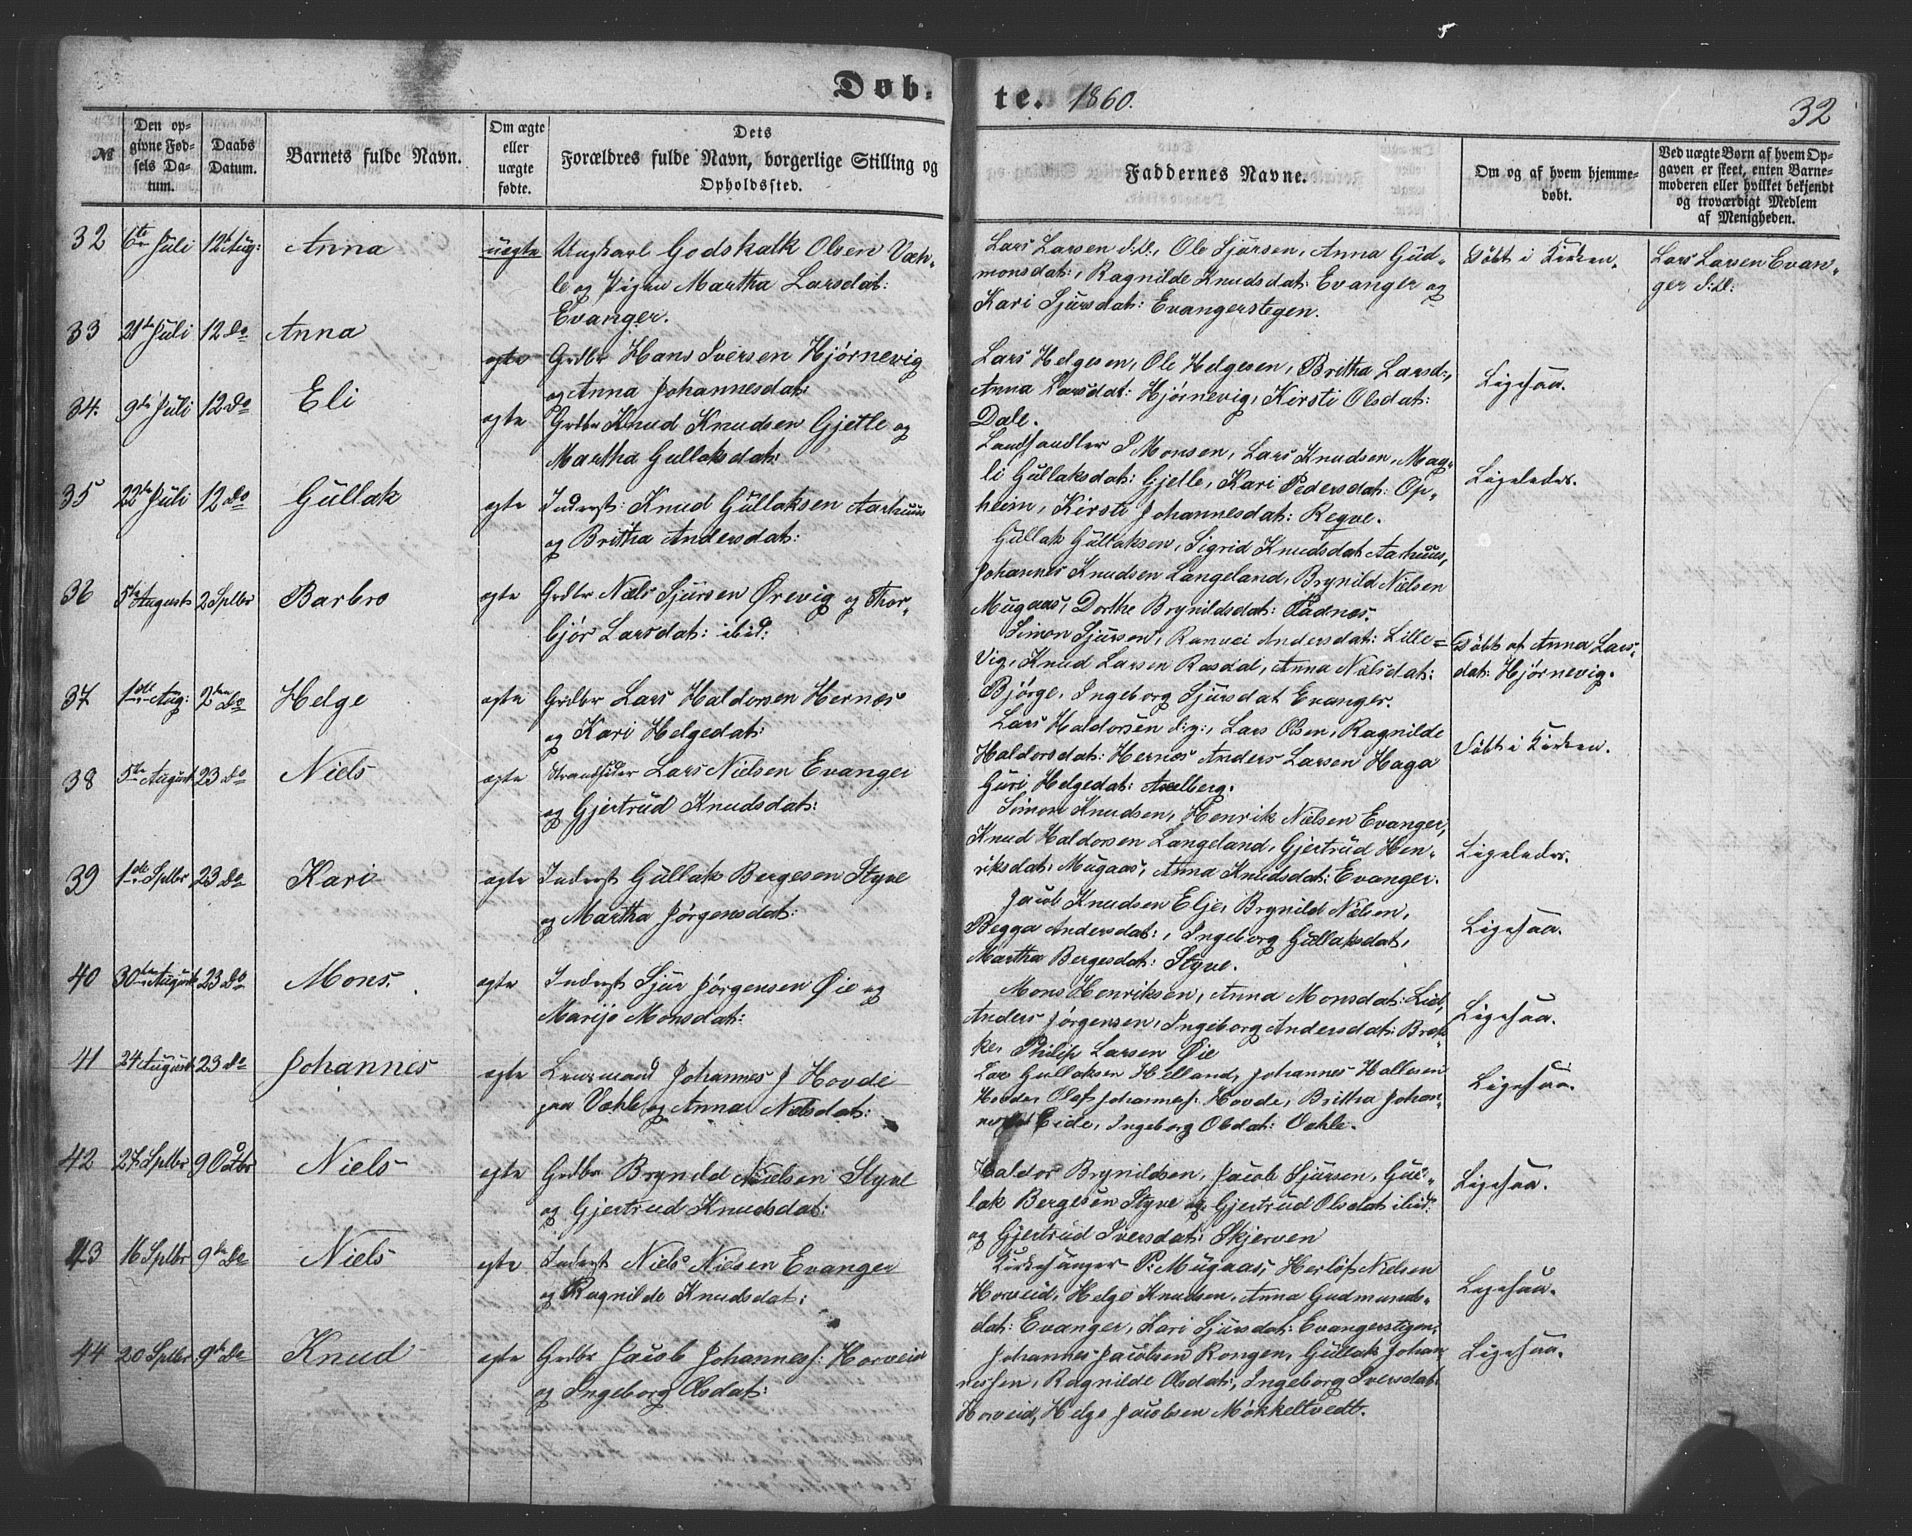 Døb-te. 1860.
32
№
Den op-
givne Fød-
sels Da-
tum.
Daabs
Datum.
Barnets fulde Navn.
Om ægte
eller
uægte
fødte.
Dets
Forældres fulde Navn, borgerlige Stilling og
Opholdssted.
Faddernes Navne.
Om og af hvem hjemme-
døbt.
Ved uægte Børn af hvem Op-
gaven er skeet, enten Barne-
moderen eller hvilket bekjendt
og troværdigt Medlem
af Menigheden.
32 6te Juli 12te Aug: Anna uegte Ungkarl Godskalk Olsen Væh-
le og Pigen Martha Larsdat:
Evanger.
Lars Larsen d:Æ:, Ole Sjursen, Anna Gud-
monsdat:, Ragnilde Knudsdat: Evanger og
Kari Sjursdat: Evangerstegen.
Døbt i Kirken.
Lars Larsen Evan-
ger d:Æ:
33 21de Juli 12 do Anna egte Grdbr Hans Iversen Hjørnevig
og Anna Johannesdat:
Lars Helgesen, Ole Helgesen, Britha Larsd:,
Anna Larsdat: Hjørnevig, Kirsti Olsdat:
Dale.
Ligesaa.
34. 9de Juli 12 do Eli egte Grdbr Knud Knudsen Gjelle og
Martha Gullaksdat:
Landhandler P Monsen, Lars Knudsen, Mag-
li Gullaksdat: Gjelle, Kari Pedersdat: Op-
heim, Kirsti Johannesdat: Reqve.
Ligeledes.
35 22de Juli 12 do Gullak egte Inderst: Knud Gullaksen Aarhuus
og Britha Andersdat:
Gullak Gullaksen, Sigrid Knudsdat Aarhuus,
Johannes Knudsen Langeland, Brynild Nielsen
Mugaas, Dorthe Brynildsdat: Fadnes.
36 5te August 2 Sptbr Barbro egte Grdbr Niels Sjursen Ørevig og Thor-
bjør Larsdat: ibid:
Simon Sjursen, Ranvei Andersdat: Lille-
Vig, Knud Larsen Rasdal, Anna Nielsdat:
Bjørge, Ingeborg Sjursdat Evanger.
Døbt af Anna Lars-
dat: Hjørnevig.
37 1ste Aug: 2den do Helge egte Grdbr Lars Haldorsen Hernes
og Kari Helgedat:
Lars Haldorsen d:y:, Lars Olsen, Ragnilde
Haldorsdat: Hernes Anders Larsen Haga
Guri Helgedat:
Døbt i Kirken.
38 5te August 23 do Niels egte Strandsidder Lars Nielsen Evanger
og Gjertrud Knudsdat:
Simon Knudsen, Henrik Nielsen Evanger,
Knud Haldorsen Langeland, Gjertrud Hen-
riksdat: Mugaas, Anna Knudsdat: Evanger.
Ligeledes.
39 1ste Sptbr 23 do Kari egte Inderst Gullak Bergesen Styve
og Martha Jørgensdat:
Jacob Knudsen Elje, Brynild Nielsen,
Begga Andersdat:, Ingeborg Gullaksdat,
Martha Bergesdat: Styve.
Ligesaa.
40 30te August 23 do Mons. egte Inderst Sjur Jørgensen Øie og
Marijo Monsdat:
Mons Henriksen, Anna Monsdat: Lid,
Anders Jørgensen, Ingeborg Andersdat: Brek-
ke, Philip Larsen Øie
Ligesaa.
41 24 August 23 do Johannes egte Leuxmand Johannes J Hovde
paa Væhle og Anna Nielsdat:
Lars Gullaksen Helland, Johannes Hallesen
Hovde, Olaf Johannes: Hovde, Britha Johan-
Eide, Ingeborg Olsdat: Væhle.
Ligesaa.
42 27 Sptbr 9 Octbr Niels egte Grdbr Brynild Nielsen Styve
og Gjertrud Knudsdat:
Haldor Brynildsen, Jacob Sjursen, Gul-
lak Bergesen Styve og Gjertrud Olsdat ibid:
og Gjertrud Iversdat: Skjerven
Ligesaa.
43 16 Sptbr 9de do Niels egte Inderst Niels Nielsen Evanger
og Ragnilde Knudsdat:
Kirkesanger P: Mugaas, Herlöf Nielsen
Horveid, Helge Knudsen, Anna Gudmunds-
dat: Evanger, Kari Sjursdat: Evangerstigen,
Ligesaa.
44 20 Sptbr 9de do Knud egte Grdbr Jacob Johannes: Horveid
og Ingeborg Olsdat:
Johannes Jacobsen Rongen, Gullak Johan-
nessen, Ragnilde Olsdat:, Ingeborg Iversdat:
Horveid, Helge Jacobsen Møkkeltvedt.
Ligesaa.